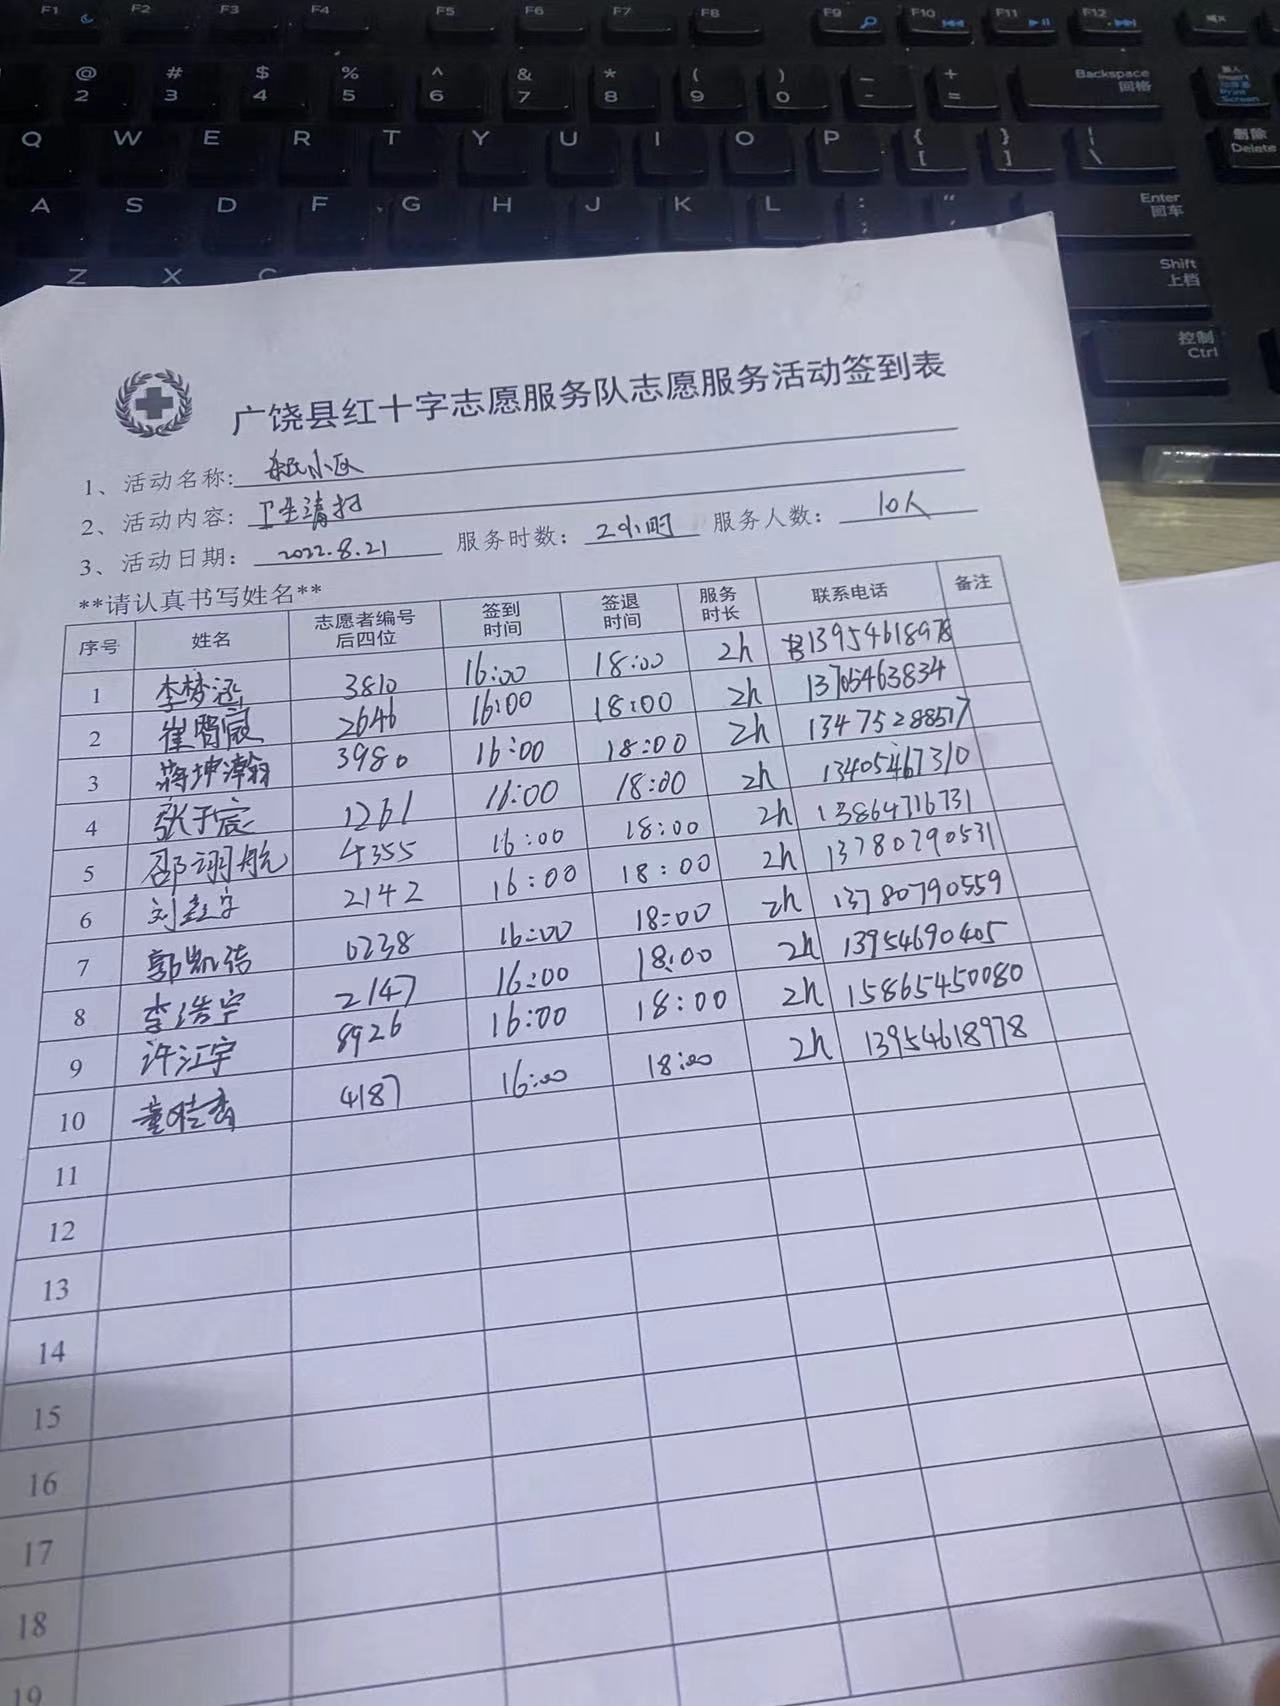 F1 F2 F3 F4 F5 F6 F7 F8 F9 F10 F11 F12
@ # $ % ^ & * ( ) — + Backspace 回格 Insert Print Screen
2 3 4 5 6 7 8 9 0 - =
Q W E R T Y U I O P { [ } ] | \ 删除 Delete
A S D F G H J K L : ; “ Enter 回车
Z X C Shift 上档
控制 Ctrl
广饶县红十字志愿服务队志愿服务活动签到表
1、活动名称: 小区
2、活动内容: 卫生清扫
3、活动日期: 2022.8.21 服务时数: 2小时 服务人数: 10人
**请认真书写姓名**
序号 姓名 志愿者编号后四位 签到时间 签退时间 服务时长 联系电话 备注
1 李梦涵 3810 16:00 18:00 2h 13954618978
2 崔智宸 2646 16:00 18:00 2h 13705463834
3 蒋坤瀚 3980 16:00 18:00 2h 13475288517
4 张子宸 1261 16:00 18:00 2h 13405467310
5 邵翊航 4355 16:00 18:00 2h 13864716731
6 刘 宇 2142 16:00 18:00 2h 13780790531
7 郭凯洁 0238 16:00 18:00 2h 13780790559
8 李浩宁 2147 16:00 18:00 2h 13954690405
9 许江宇 8926 16:00 18:00 2h 15865450080
10 董桂香 4187 16:00 18:00 2h 13954618978
11
12
13
14
15
16
17
18
19